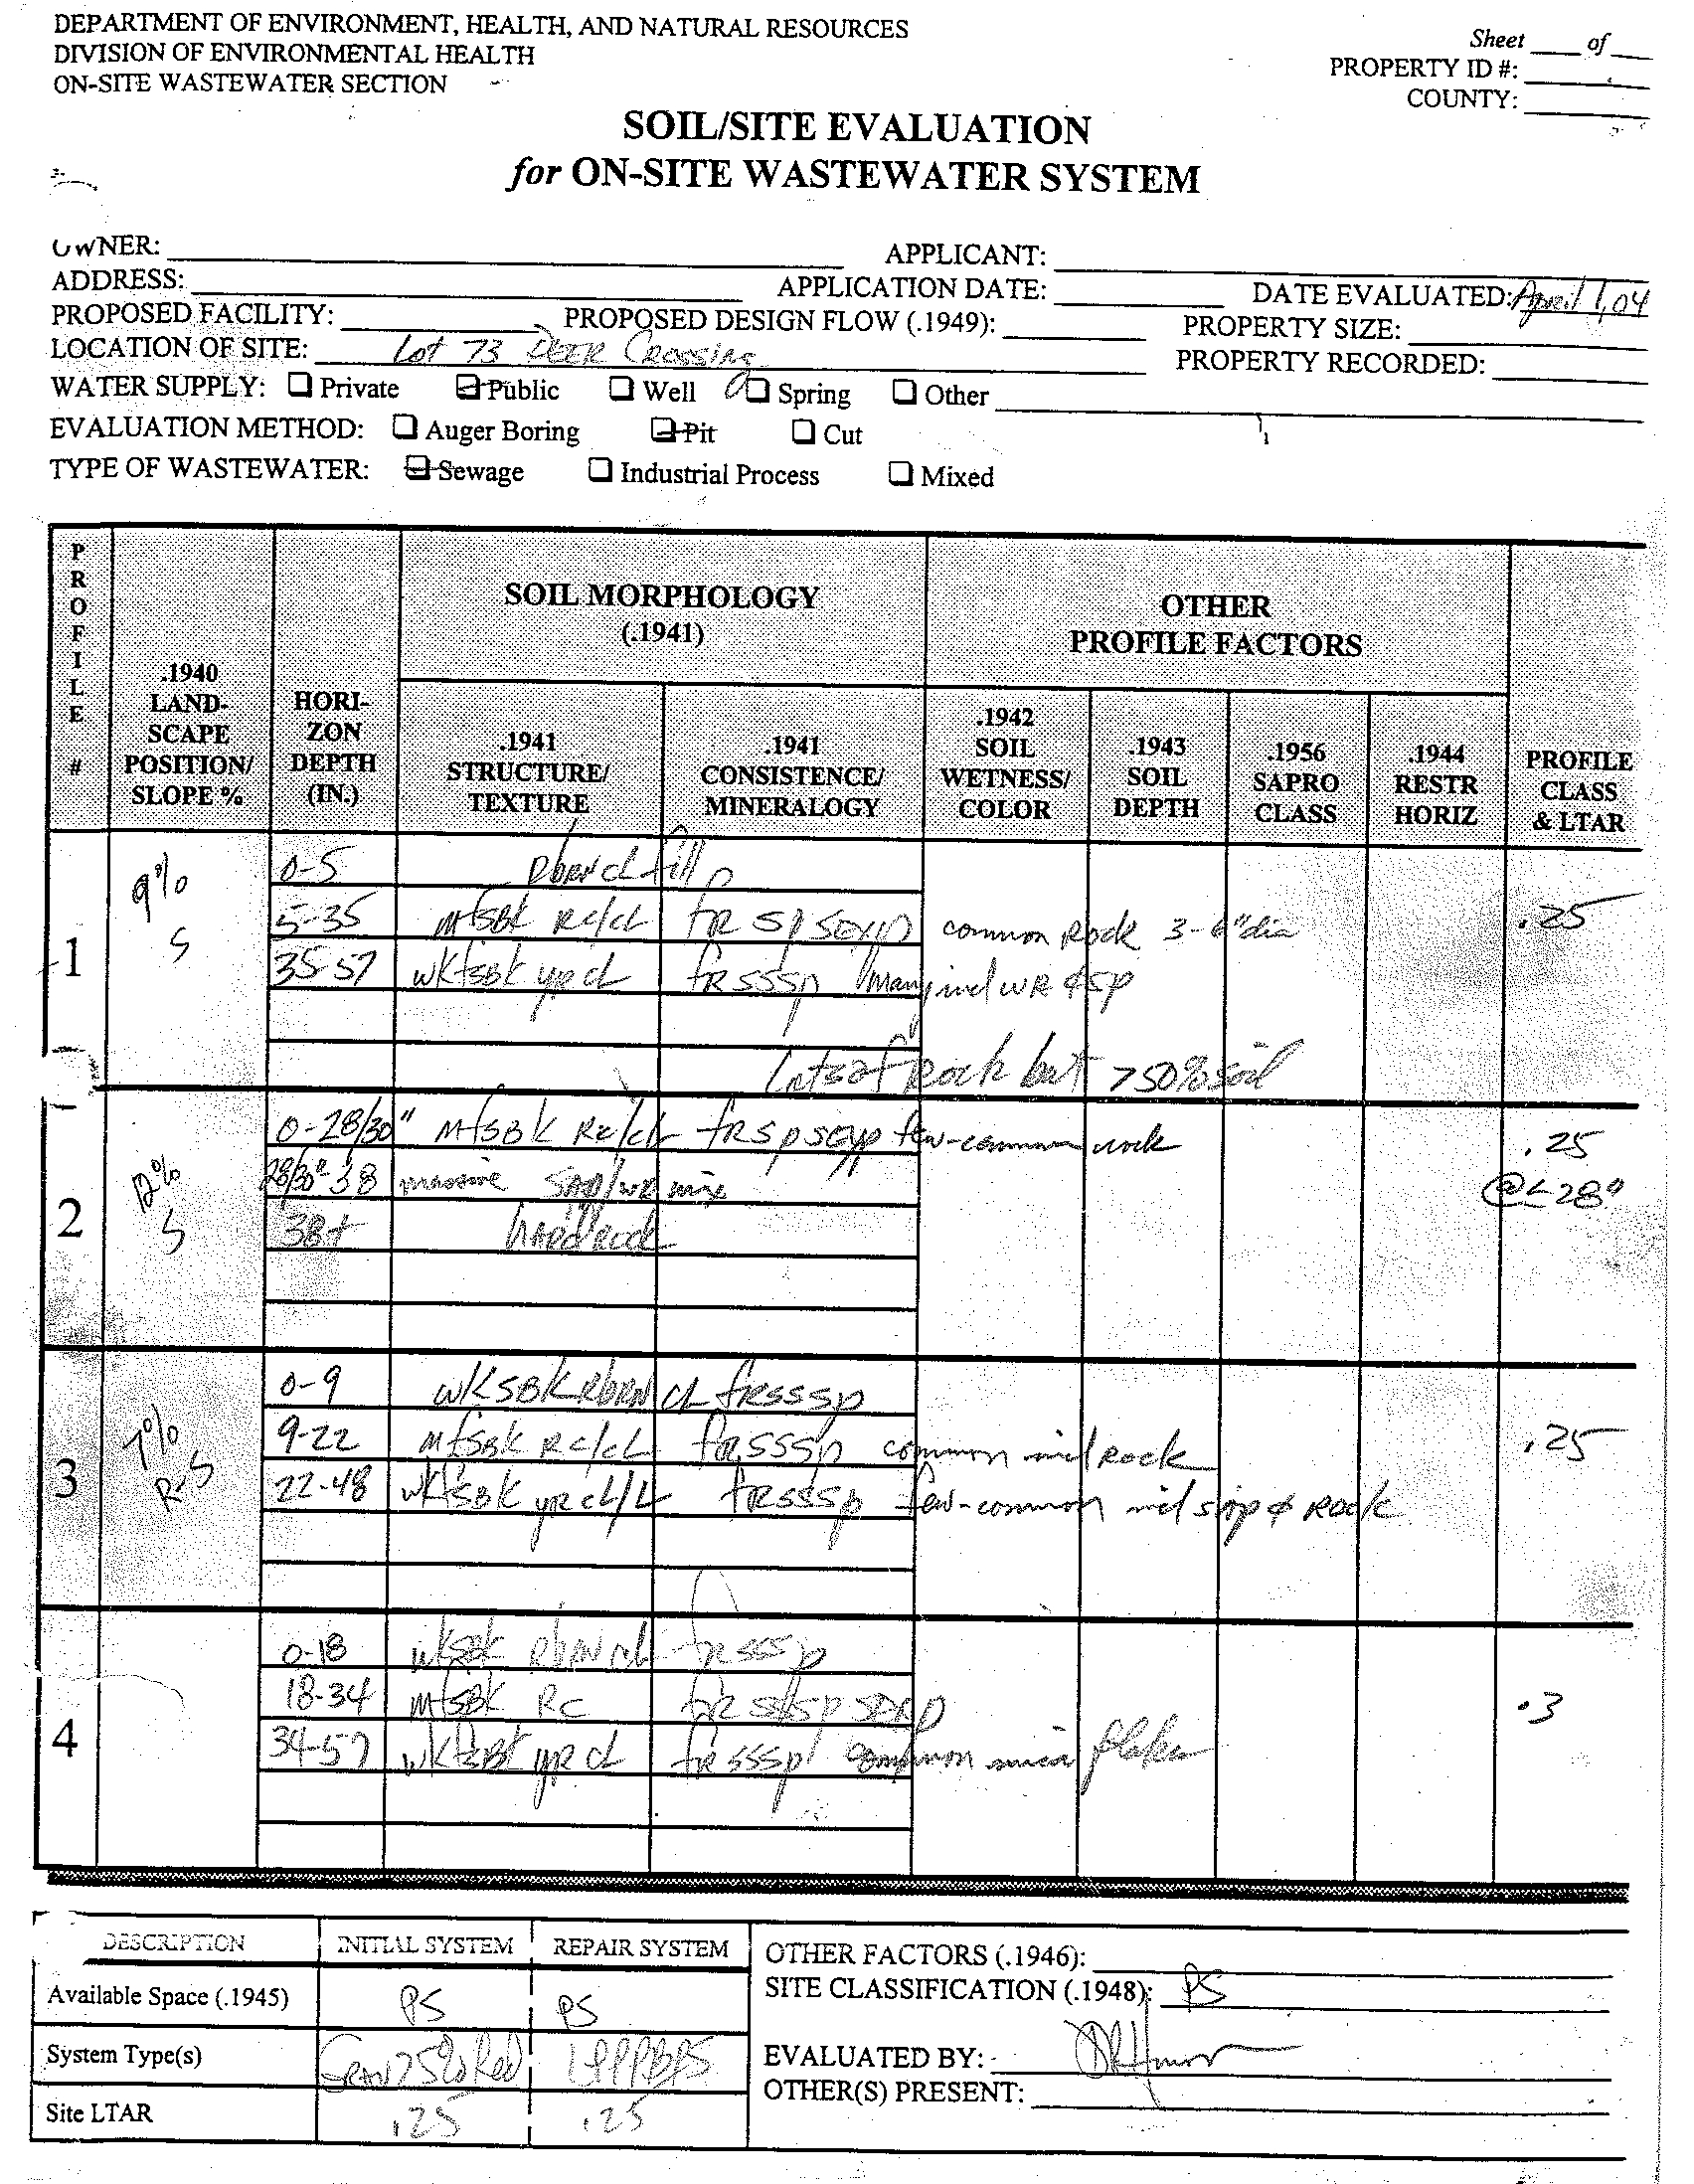 DEPARTMENT OF ENVIRONMENT, HEALTH, AND NATURAL RESOURCES
DIVISION OF ENVIRONMENTAL HEALTH
ON-SITE WASTEWATER SECTION
Sheet ____ of ____
PROPERTY ID #:
COUNTY:
SOIL/SITE EVALUATION
for ON-SITE WASTEWATER SYSTEM
OWNER:
APPLICANT:
ADDRESS:
APPLICATION DATE:
DATE EVALUATED: April 1, 04
PROPOSED FACILITY:
PROPOSED DESIGN FLOW (.1949):
PROPERTY SIZE:
LOCATION OF SITE: Lot 73 DEER Crossing
PROPERTY RECORDED:
WATER SUPPLY: ☐ Private ☒ Public ☐ Well ☐ Spring ☐ Other
EVALUATION METHOD: ☐ Auger Boring ☒ Pit ☐ Cut
TYPE OF WASTEWATER: ☒ Sewage ☐ Industrial Process ☐ Mixed
PROFILE #
.1940 LAND-SCAPE POSITION/ SLOPE %
HORI-ZON DEPTH (IN.)
SOIL MORPHOLOGY (.1941)
.1941 STRUCTURE/ TEXTURE
.1941 CONSISTENCE/ MINERALOGY
OTHER PROFILE FACTORS
.1942 SOIL WETNESS/ COLOR
.1943 SOIL DEPTH
.1956 SAPRO CLASS
.1944 RESTR HORIZ
PROFILE CLASS & LTAR
1
9% S
0-5 Rbrn cl fill
5-35 mfSBK Rc/cL fR SP SEXP common Rock 3-6" dia
.25
35-57 wkfSBK YR cL fR SSSP many incl WR & SP
Lots of Rock but >50% soil
2
12% S
0-28/30" MfSBK Rc/cL fRSP SEXP few-common rock
.25 @ ≤ 28"
28/30"-38 massive SAP/WR mix
38+ hARd Rock
3
7% R-S
0-9 wkSBK RbRN CL fRSSSP
9-22 MfSBK Rc/cL fRSSSP common incl Rock
.25
22-48 wkfSBK YR cL/L fRSSSP few-common incl sap & Rock
4
0-18 wkSBK RbRN cL fRSSSP
18-34 MfSBK Rc fR
.3
34-57 wkfSBK YR cL fRSSSP common mica flakes
DESCRIPTION INITIAL SYSTEM REPAIR SYSTEM
Available Space (.1945) PS PS
System Type(s) 25% Red
Site LTAR .25 .25
OTHER FACTORS (.1946):
SITE CLASSIFICATION (.1948): PS
EVALUATED BY:
OTHER(S) PRESENT: